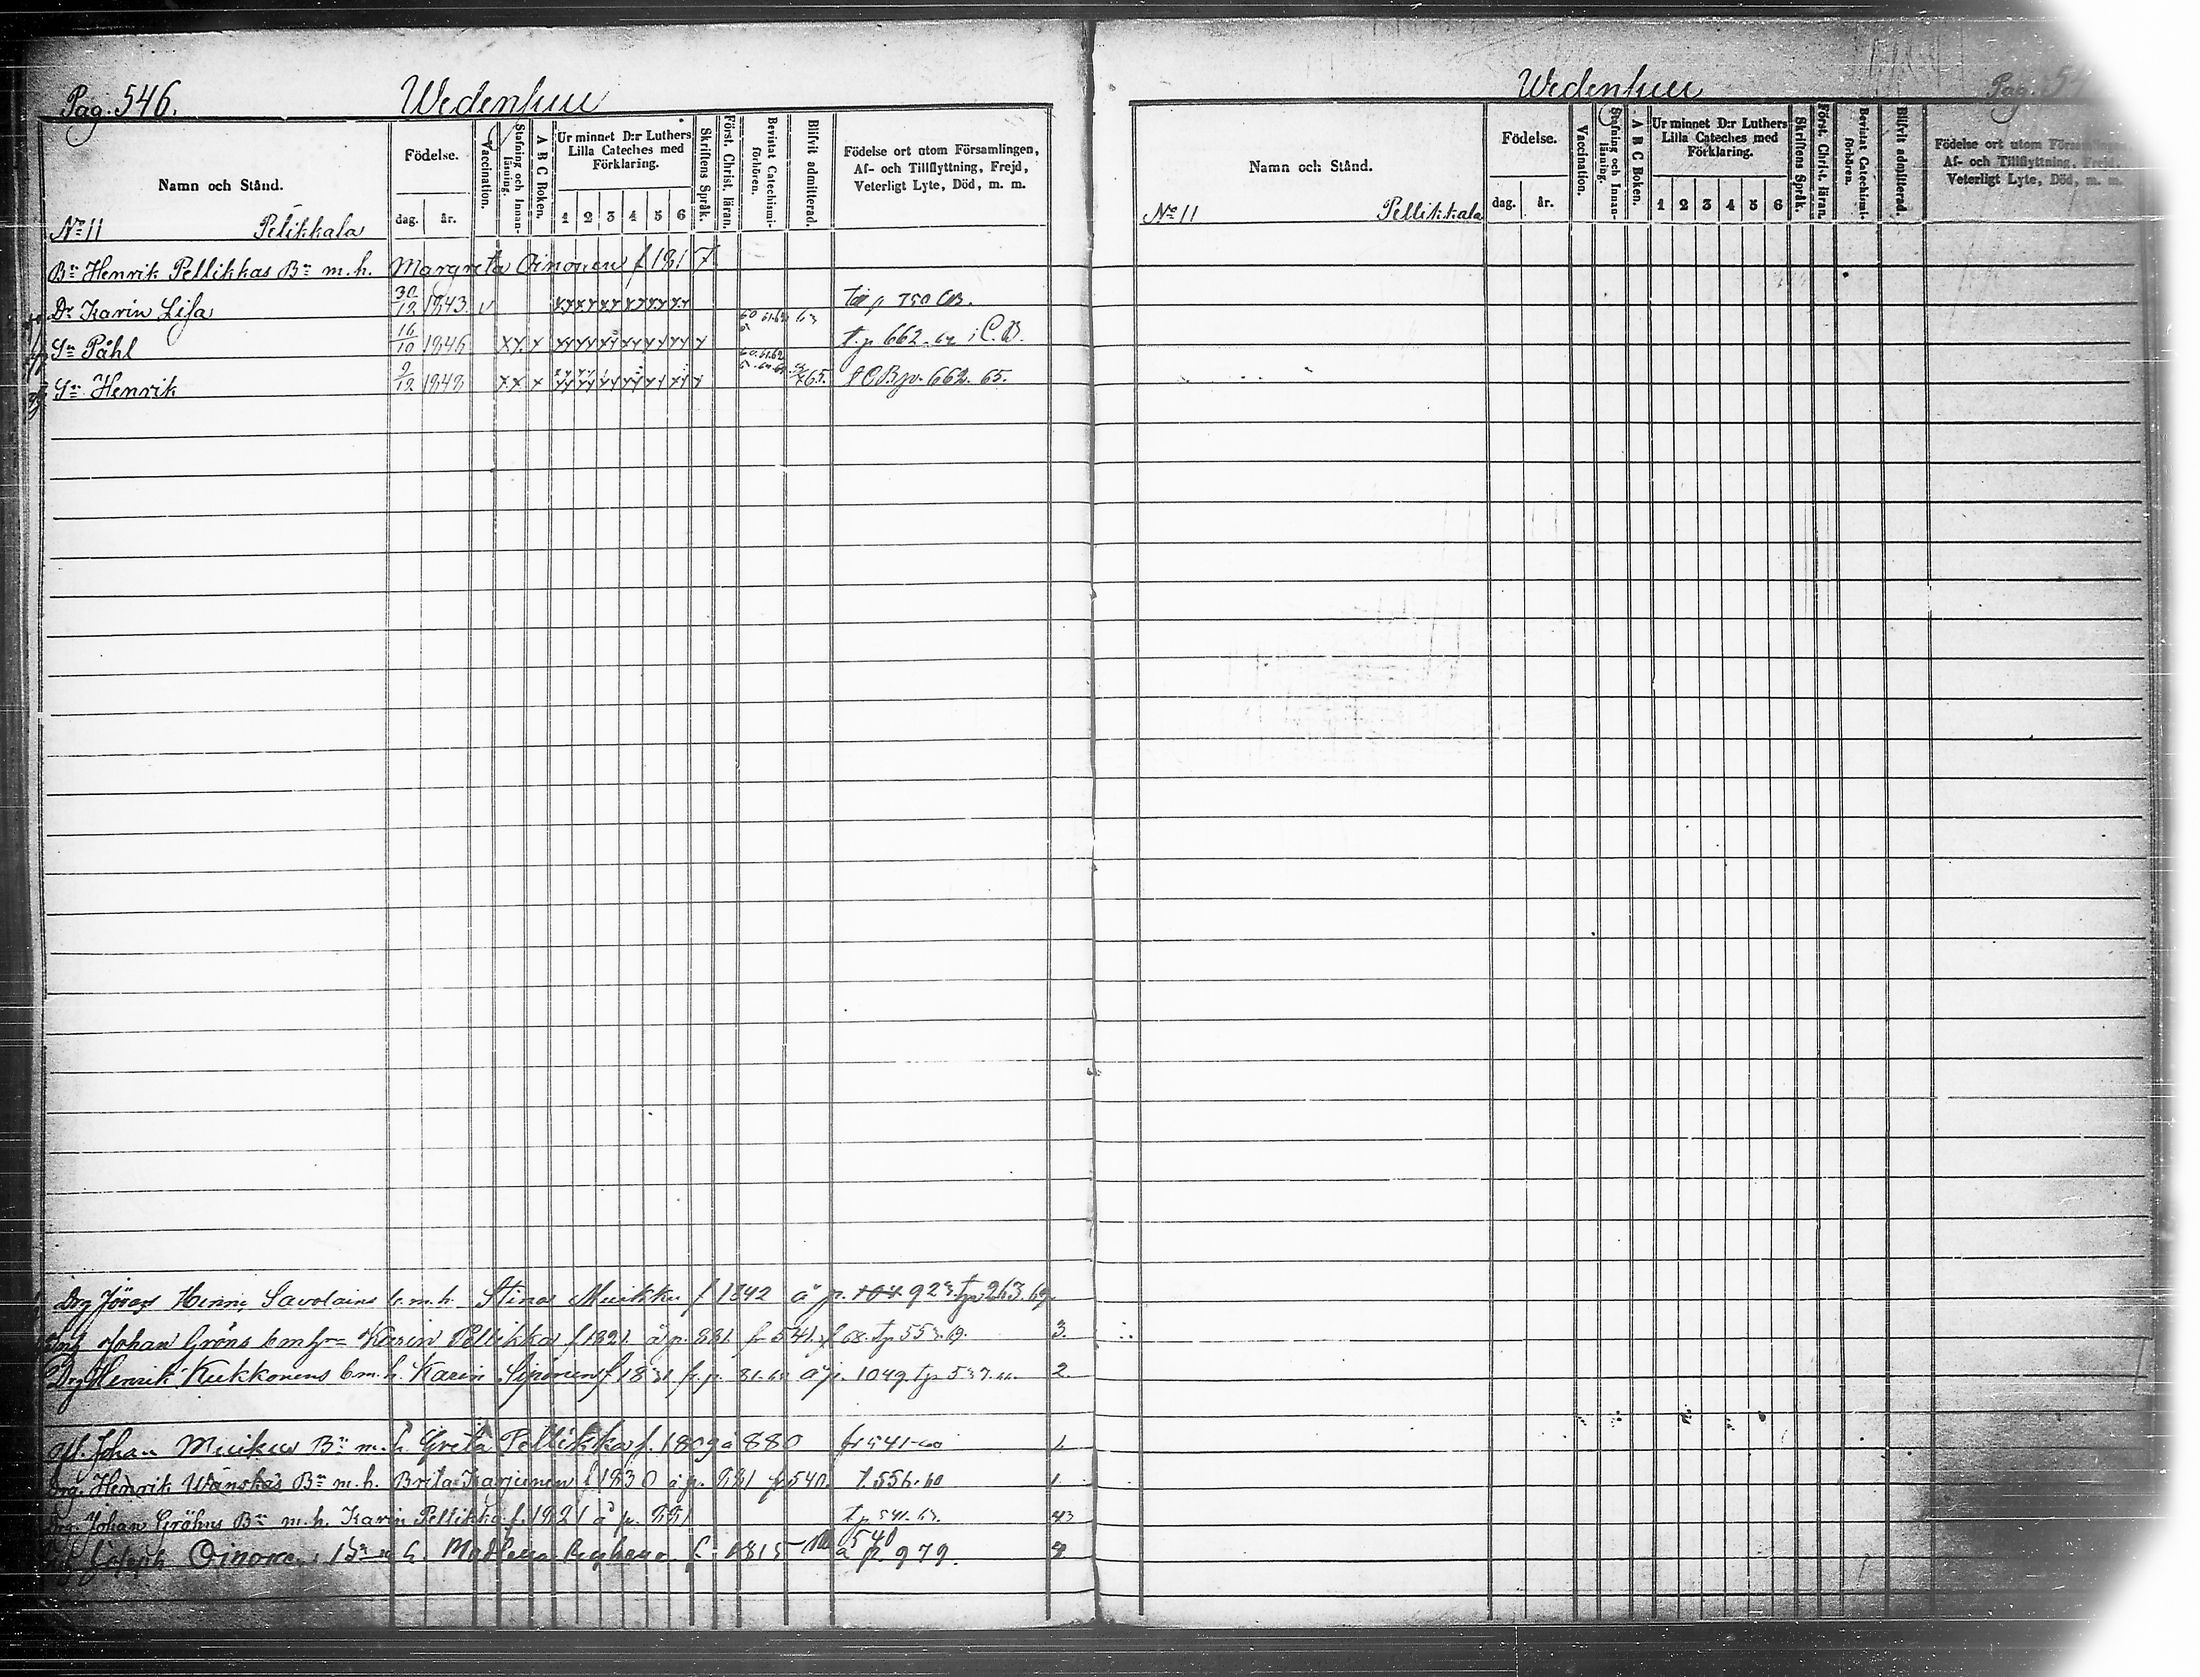 Pag. 546. Wedensuu
Namn och Stånd.
Födelse.
dag. år.
Vaccination.
Stafning och Innan-läsning.
A B C Boken.
Ur minnet D:r Luthers Lilla Cateches med Förklaring.
1 2 3 4 5 6
Skriftens Språk.
Först. Christ. läran.
Bevistat Catechismi-förhören.
Blifvit admitterad.
Födelse ort utom Församlingen,
Af- och Tillflyttning, Frejd,
Veterligt Lyte, Död, m. m.
No 11 Pelikkala
Bn Henrik Pellikkas Bn m. h. Margreta Oinonen f 1817
Dr Karin Lisa 30/12 1843 v p 750
Sn Påhl 16/10 1846 x x x t. p 662
Sn Henrik 9/12 1848 x x x 65. p. 662. 65.
Drg Henr Savolains m. h. Stina Muikku f 1842 å p. 104 92 263. 69.
Johan Gröns b m h Karin Pellikka f 1821. å p. 881. 541. 68. 3.
Drg Henrik Kukkonens b m. h. Karin f 18 å p. 1049 2.
Johan Muikus Bn m. h. Greta Pellikka f. 1809 å 880 541-60 1.
Drg. Henrik Wänskäs Bn m. h. Brita Karjunen f 1830 å p. 881 540. t. 556. 60 1.
Drg. Johan Gröhns Bn m. h. Karin Pellikka f. 1821 å p. 881 t p 541. 63.
Joseph Oinonens f 1815 540 å p. 979.
Wedensuu Pag. 54
Namn och Stånd.
Födelse.
dag. år.
Vaccination.
Stafning och Innan-läsning.
A B C Boken.
Ur minnet D:r Luthers Lilla Cateches med Förklaring.
1 2 3 4 5 6
Skriftens Språk.
Först. Christ. läran.
Bevistat Catechismi-förhören.
Blifvit admitterad.
Födelse ort utom Församlingen,
Af- och Tillflyttning, Frejd,
Veterligt Lyte, Död, m. m.
No 11 Pellikkala